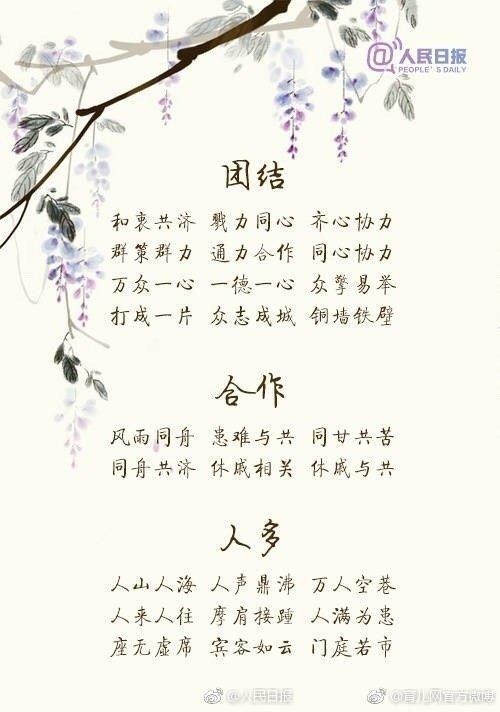 @人民日报
PEOPLE'S DAILY
团结
和衷共济 戮力同心 齐心协力
群策群力 通力合作 同心协力
万众一心 一德一心 众擎易举
打成一片 众志成城 铜墙铁壁
合作
风雨同舟 患难与共 同甘共苦
同舟共济 休戚相关 休戚与共
人多
人山人海 人声鼎沸 万人空巷
人来人往 摩肩接踵 人满为患
座无虚席 宾客如云 门庭若市
@人民日报 @育儿网官方微博